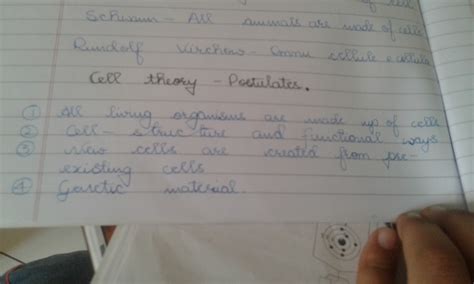 of cell
Schwann - All animals are made of cells
Rundolf Virchow - Omni cellule e cellula
Cell theory - Postulates.
① All living organisms are made up of cells
② Cell - structure and functional ways
③ New cells are created from pre-
existing cells
④ Genetic material.